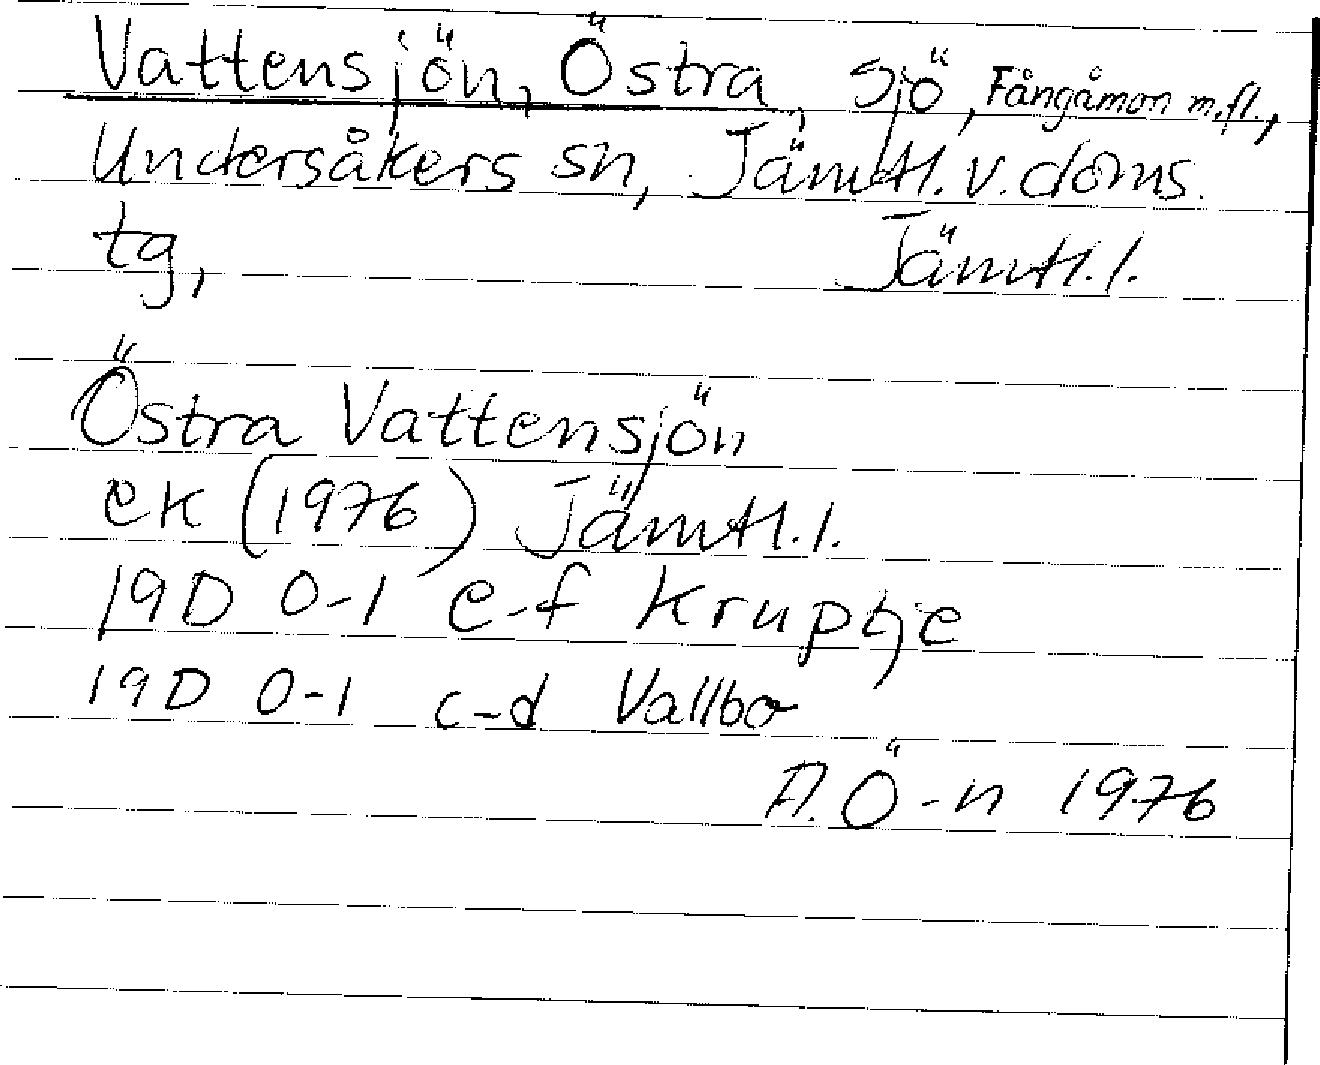 Vattensjön, Östra, Sjö, Fångåmon m.fl.,
Undersåkers sn, Jämtl. v. doms.
tg, Jämtl. l.
Östra Vattensjön
ek (1976) Jämtl. l.
19D 0-1 e-f Kruptje
19D 0-1 c-d Vallbo
A. Ö-n 1976